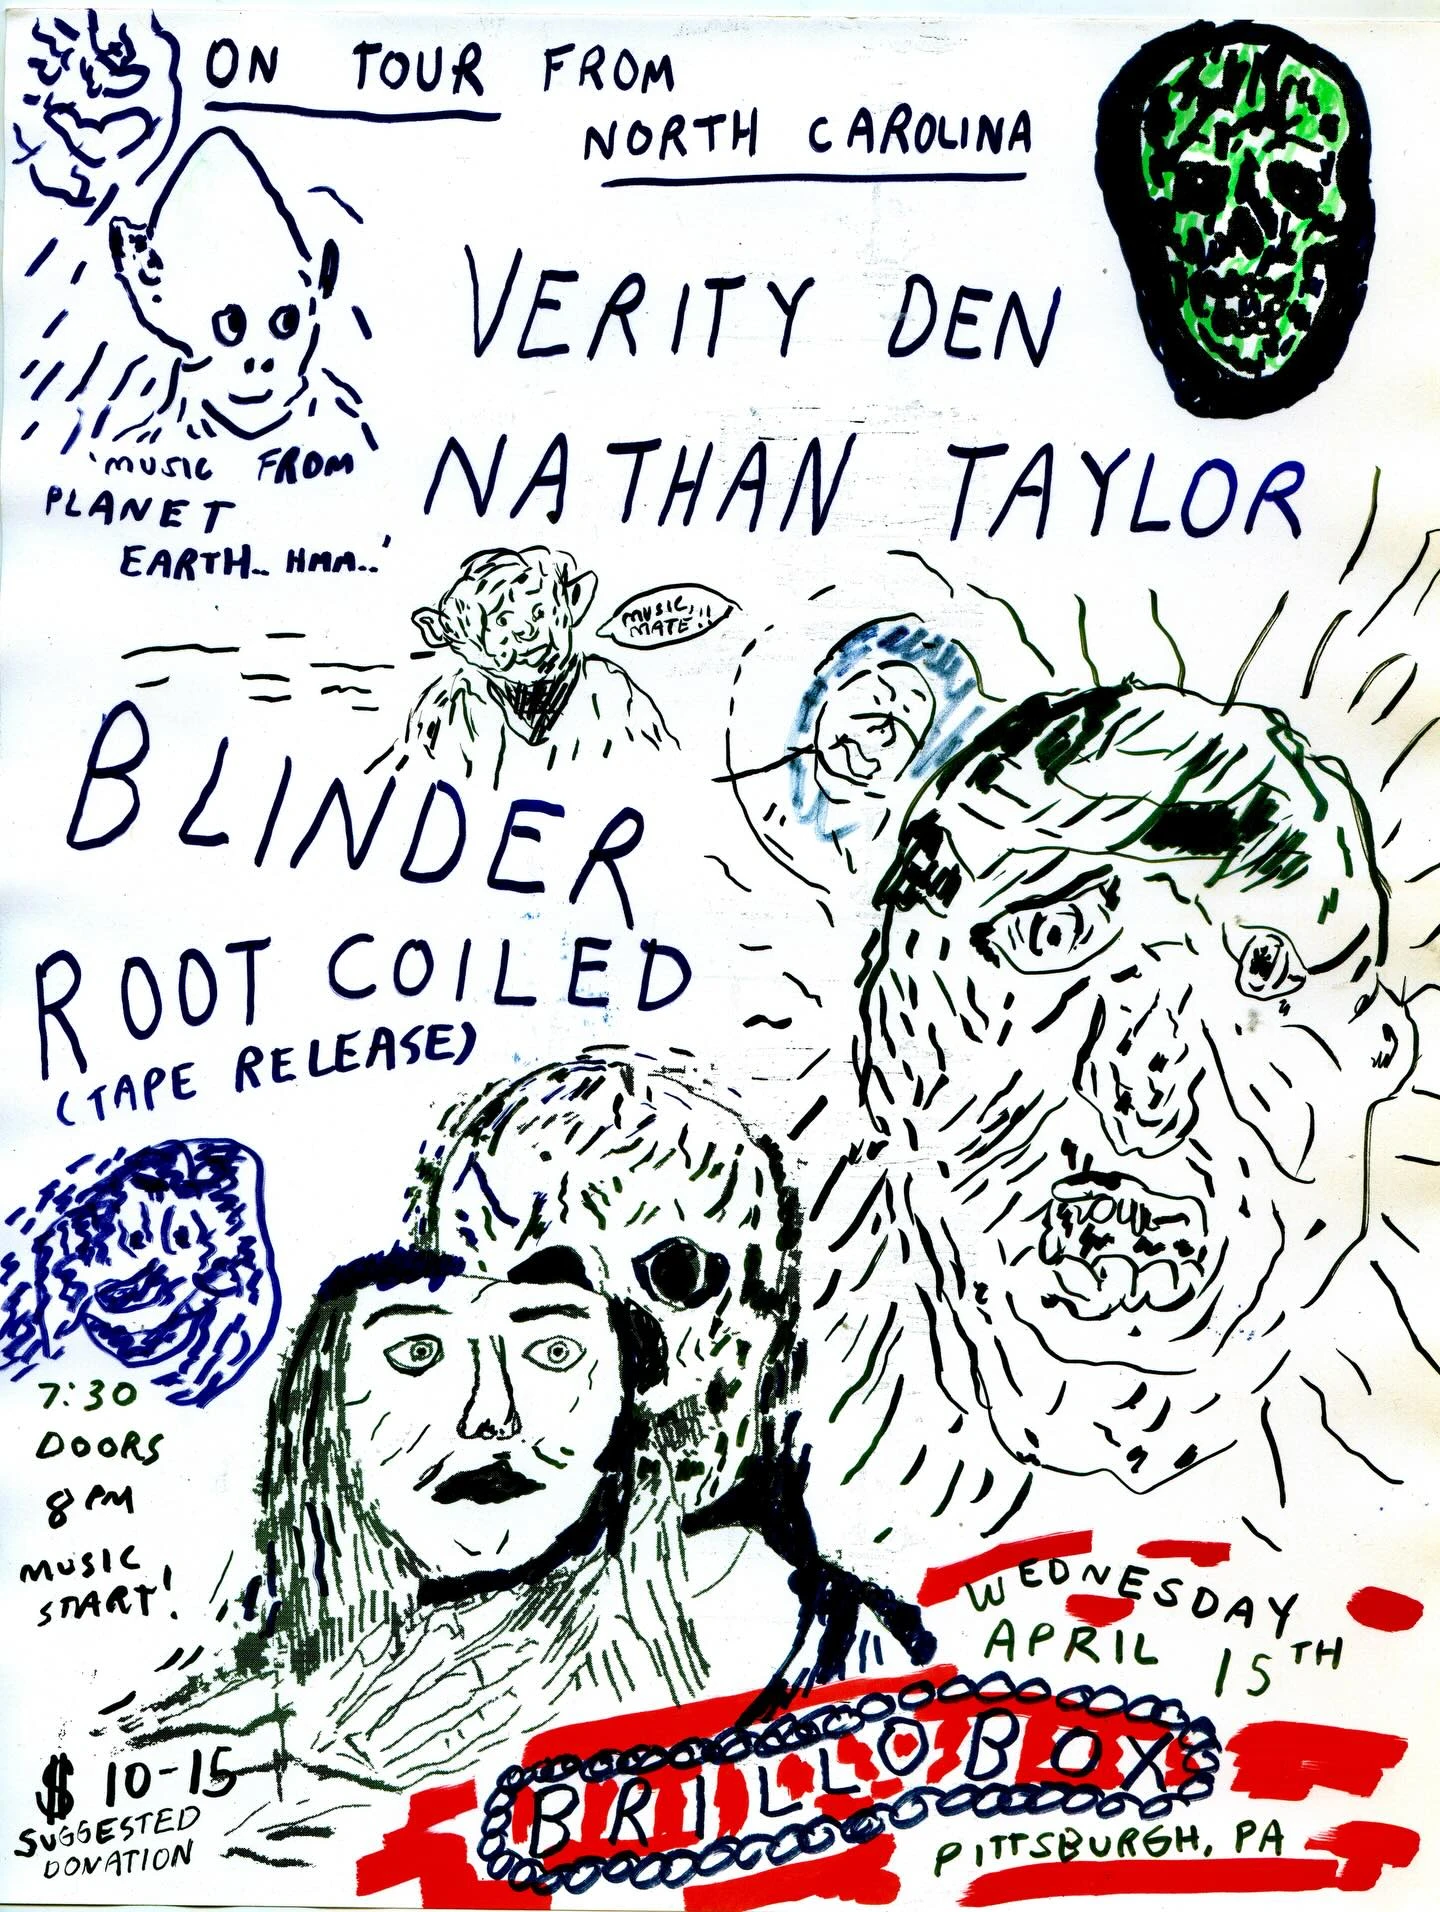 ON TOUR FROM
NORTH CAROLINA
VERITY DEN
NATHAN TAYLOR
'MUSIC FROM
PLANET
EARTH.. HMM..'
MUSIC,
MATE!!
BLINDER
ROOT COILED
(TAPE RELEASE)
7:30
DOORS
8 PM
MUSIC
START!
$10-15
SUGGESTED
DONATION
WEDNESDAY
APRIL 15TH
BRILLOBOX
PITTSBURGH, PA